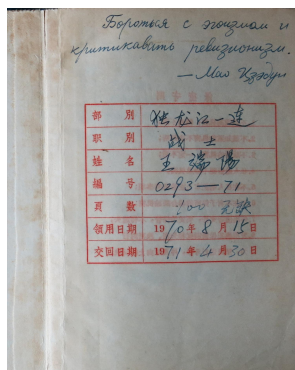 Бороться с эгоизмом и
критикавать ревизионизм.
— Мао Цзэдун
部別 独龙江一连
职別 战士
姓名 王瑞陽
編号 0293—71
頁数 100
領用日期 1970年8月15日
交回日期 1971年4月30日